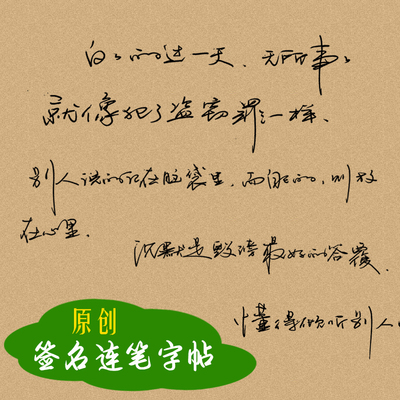 白々的过一天、无所事々
就像犯了盗窃罪一样、
别人说的记在脑袋里，而的，则放
在心里.
沉默是毁谤最好的答覆.
懂得倾听别人
原创
签名连笔字帖